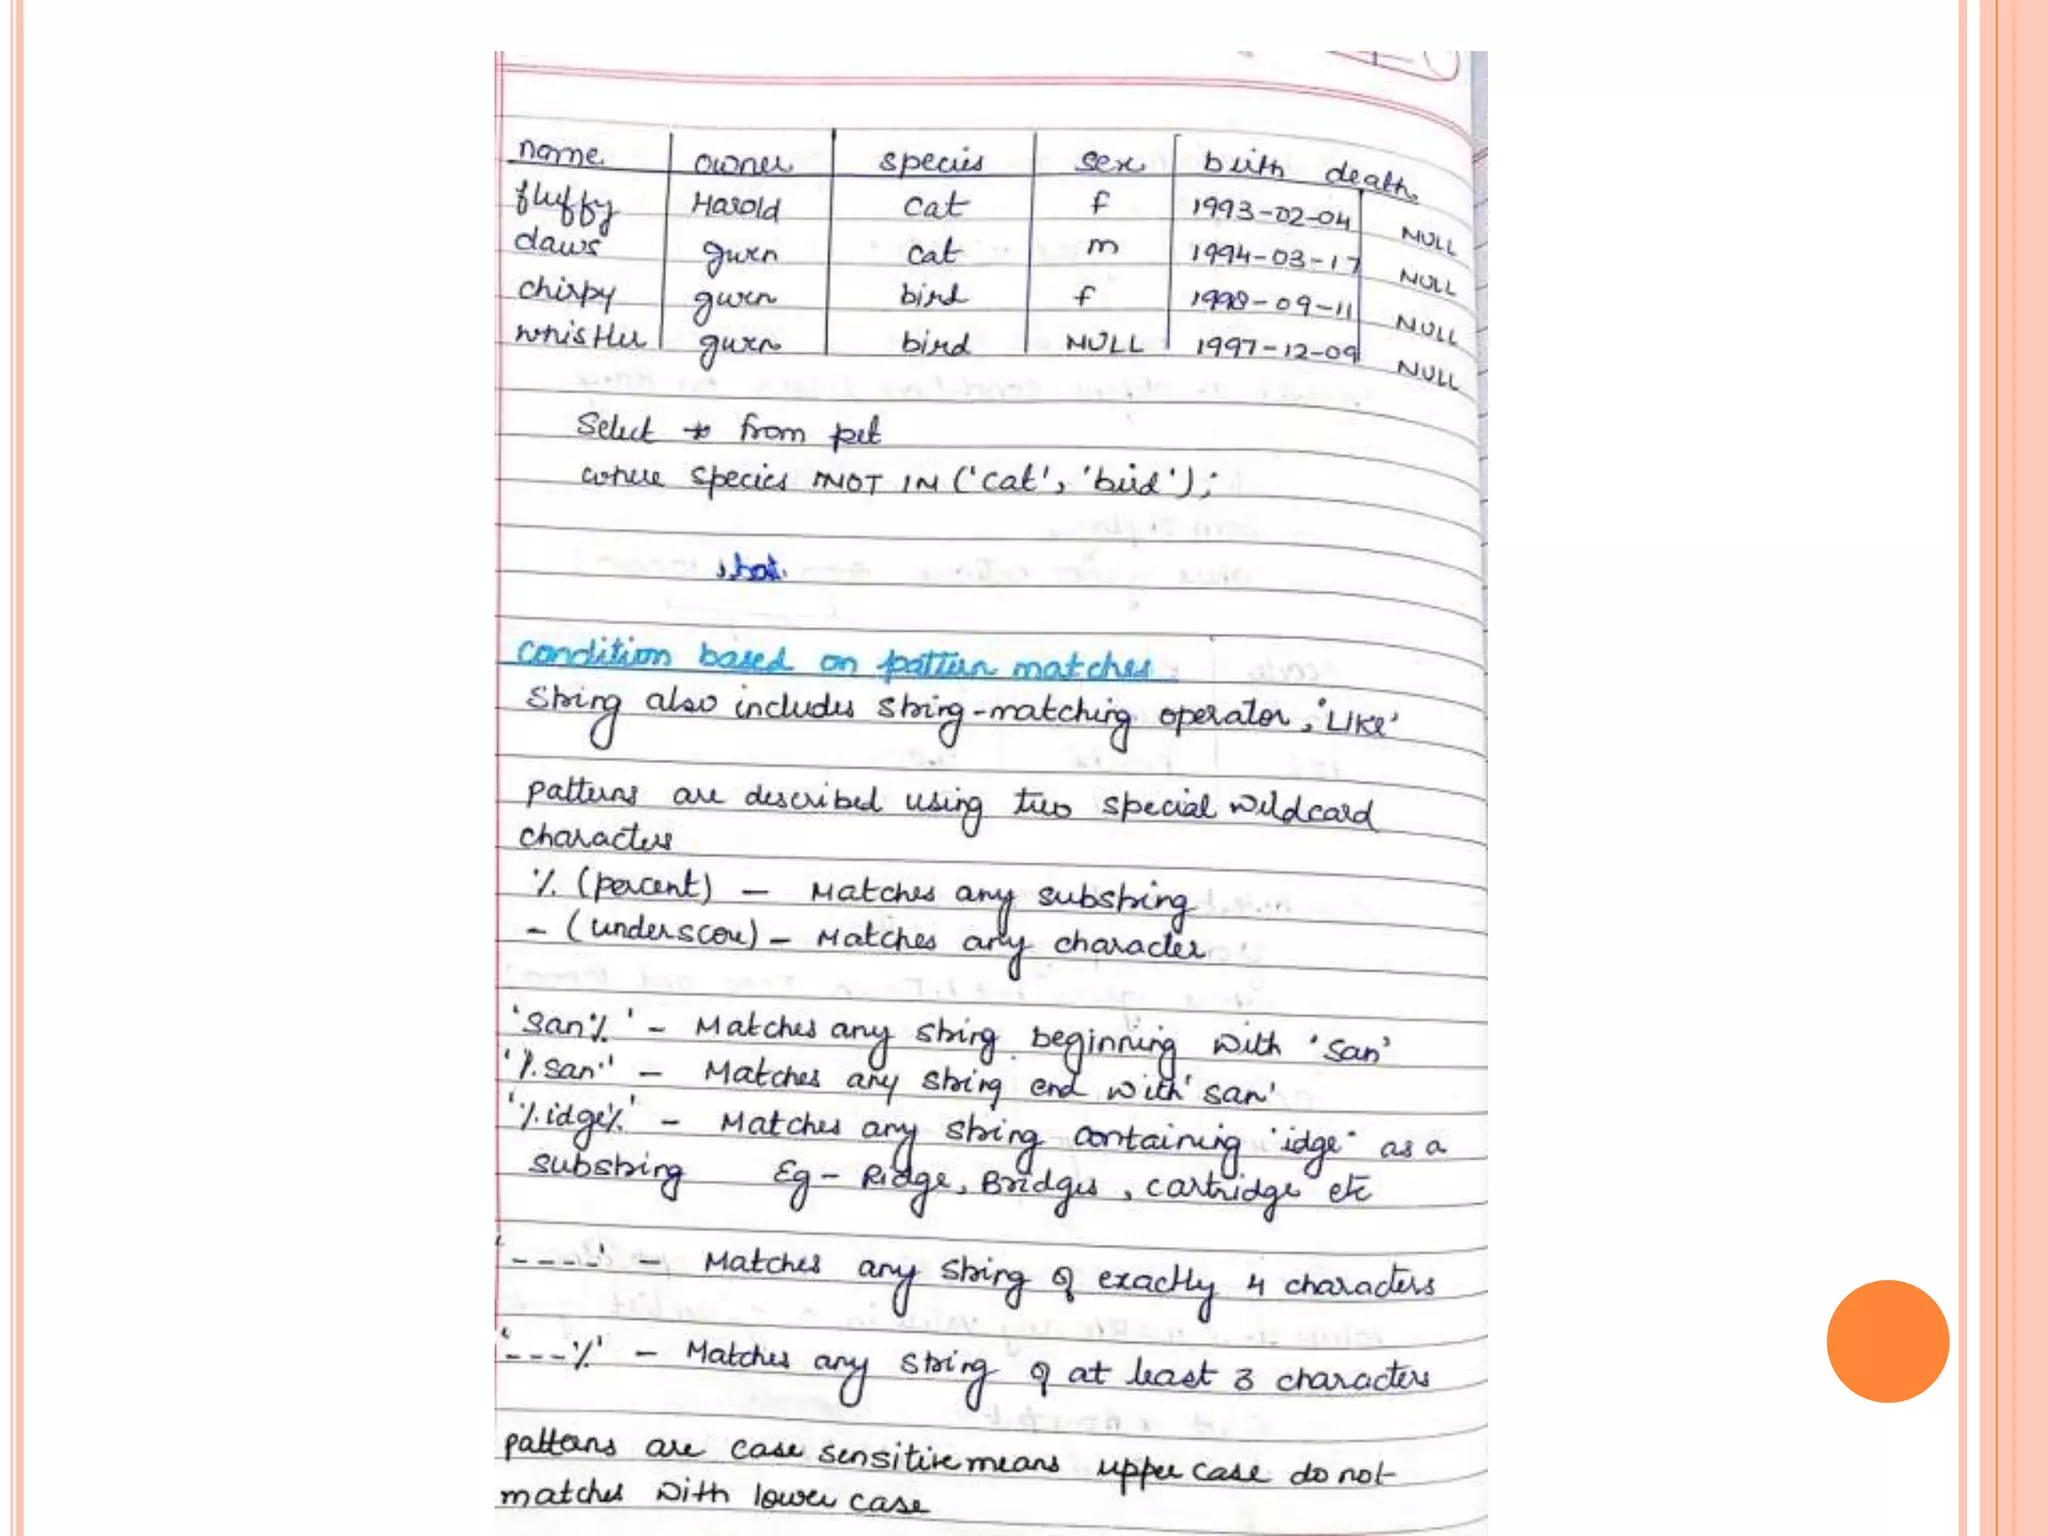 name owner species sex birth death
fluffy Harold cat f 1993-02-04 NULL
claws gwen cat m 1994-03-17 NULL
chirpy gwen bird f 1998-09-11 NULL
whistler gwen bird NULL 1997-12-09 NULL
Select * from pet
where species NOT IN ('cat', 'bird');
condition based on pattern matches:
String also includes string-matching operator, 'LIKe'
patterns are described using two special wildcard
characters
% (percent) – Matches any substring
_ (underscore) – Matches any character
'san%' – Matches any string beginning with 'san'
'%san' – Matches any string end with 'san'
'%idge%' – Matches any string containing 'idge' as a
substring Eg – Ridge, Bridges, cartridge etc
'____' – Matches any string of exactly 4 characters
'___%' – Matches any string of at least 3 characters
patterns are case sensitive means upper case do not
matches with lower case